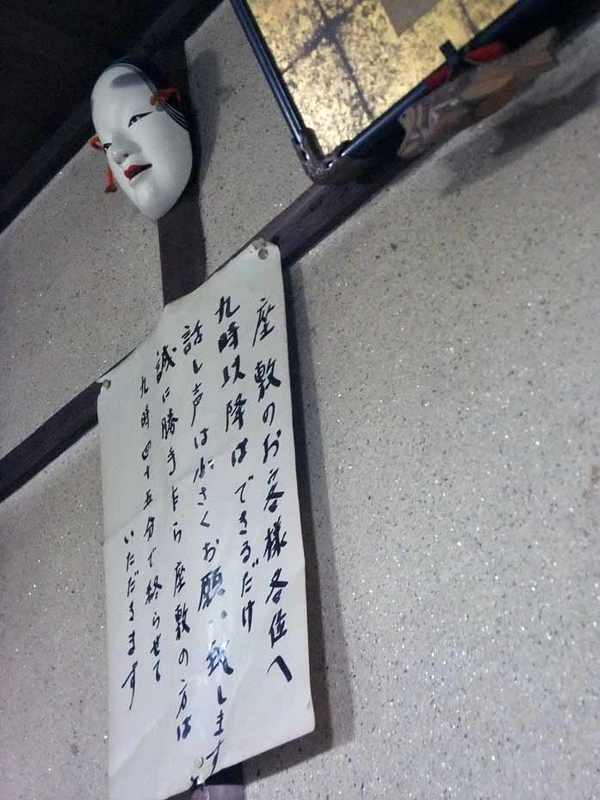 座敷のお客様各位へ
九時以降はできるだけ
話し声は小さくお願い致します
誠に勝手乍ら座敷の方は
九時四十五分で終らせて
いただきます